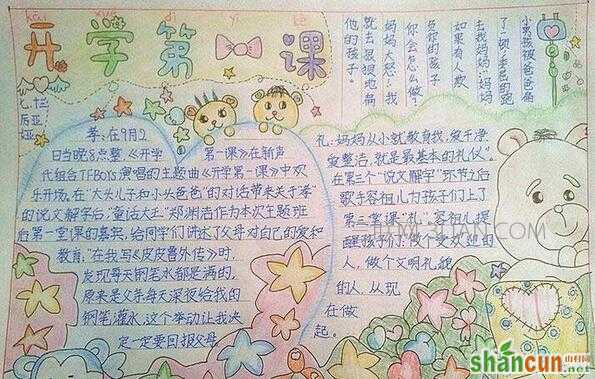 开学第一课
七.十三
后亚
孝:在9月2
日当晚8点整,《开学
第一课》在新声
代组合TFBOYS演唱的主题曲《开学第一课》中欢
乐开场。在"大头儿子和小头爸爸"的对话带来关于孝
的说文解字后,"童话大王"郑渊洁作为本次主题班
后第一堂课的嘉宾,给同学们讲述了父母对自己的爱和
教育,"在我写《皮皮鲁外传》时,
发现每天钢笔水都是满的,
原来是父亲每天深夜给我的
钢笔灌水,这个举动让我决
定一定要回报父母
小男孩被爸爸
去找妈妈:妈妈
如果有人欺
负你的孩子
你会怎么做?
妈妈大怒:我
就去狠狠地揍
他的孩子。
礼:妈妈从小就教育我,穿干净
穿整洁,就是最基本的礼仪》。
在第三个"说文解字"环节之后
歌手容祖儿为孩子们上了
第三堂课"礼",容祖儿提
醒孩子们:做个受欢迎的
人,做个文明礼貌
的人,从现
在做
起。
shancun
山村网
.net